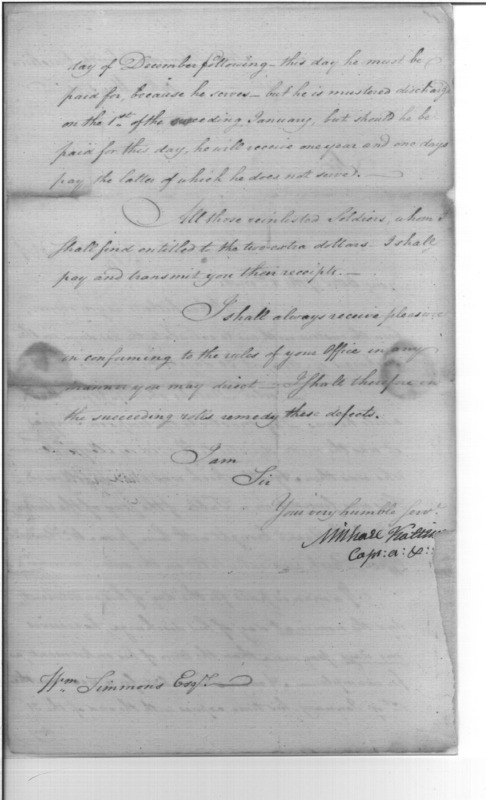 day of December following - this day he must be
paid for, because he serves - but he is mustered discharged
on the 1st. of the succeeding January, but should he be
paid for this day, he will receive one year and one days
pay the latter of which he does not serve. -
All those reinlisted Soldiers, whom I
shall find entitled to the two extra dollars I shall
pay and transmit you their receipts. -
I shall always receive pleasure
in conforming to the rules of your Office in any
manner you may direct - I shall therefore in
the succeeding rolls remedy these defects.
I am
Sir
Your very humble Servt.
Michael Kalteisen
Cap: a: &:
Wm Simmons Esqr.